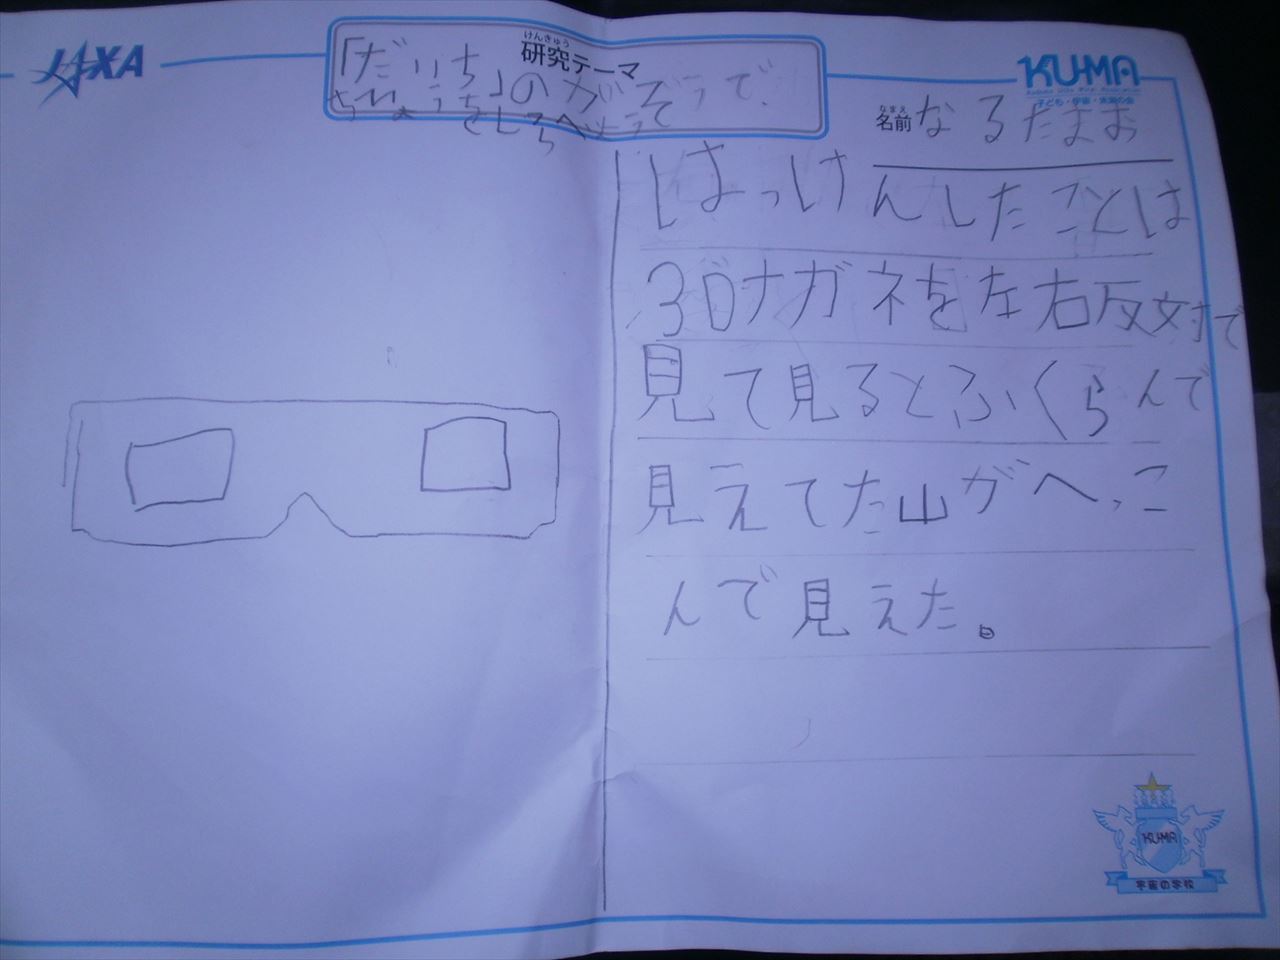 JAXA
けんきゅう
研究テーマ
「だいち」のがぞうで、
ちけいをしらべよう
KU-MA
子ども・宇宙・未来の会
なまえ
名前 なるたまお
はっけんしたことは
3Dメガネを左右反対で
見て見るとふくらんで
見えてた山がへっこ
んで見えた。
KU-MA
宇宙の学校